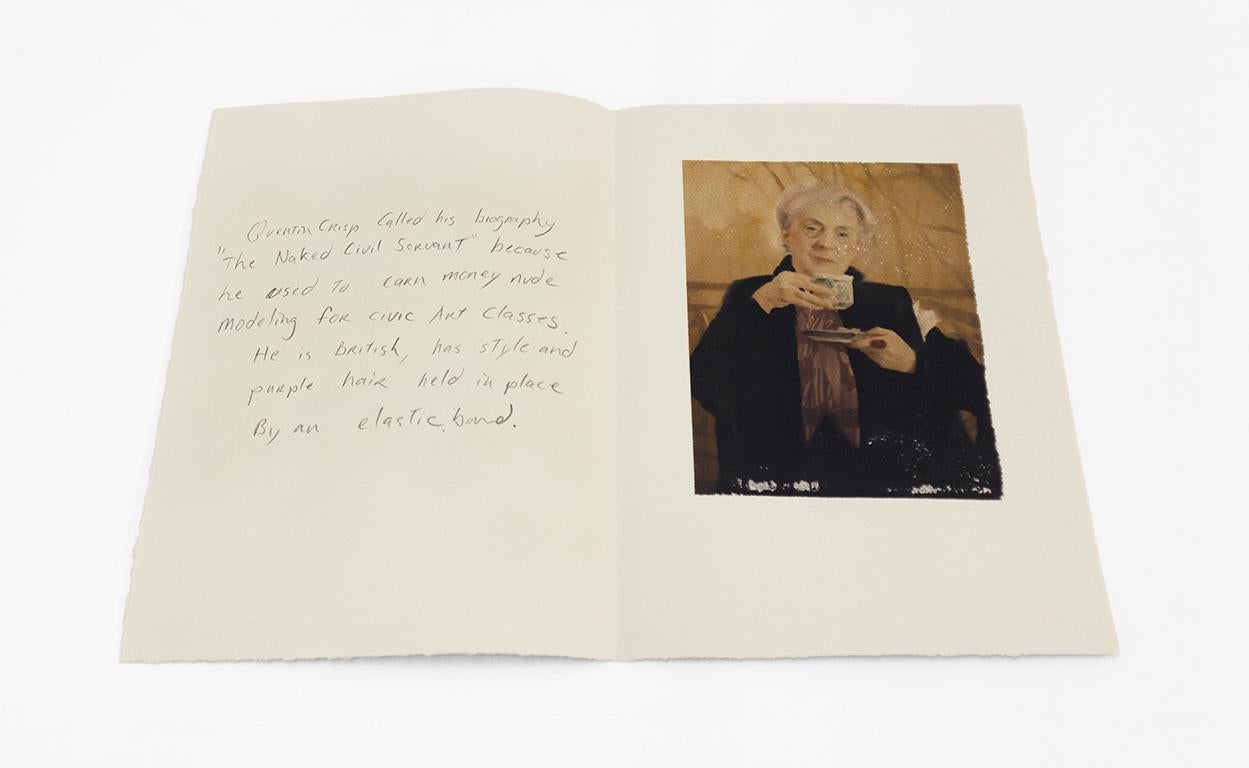 Quentin Crisp Called his biography
"The Naked Civil Servant" because
he used To earn money nude
modeling for civic Art Classes.
He is British, has style and
purple hair held in place
By an elastic band.